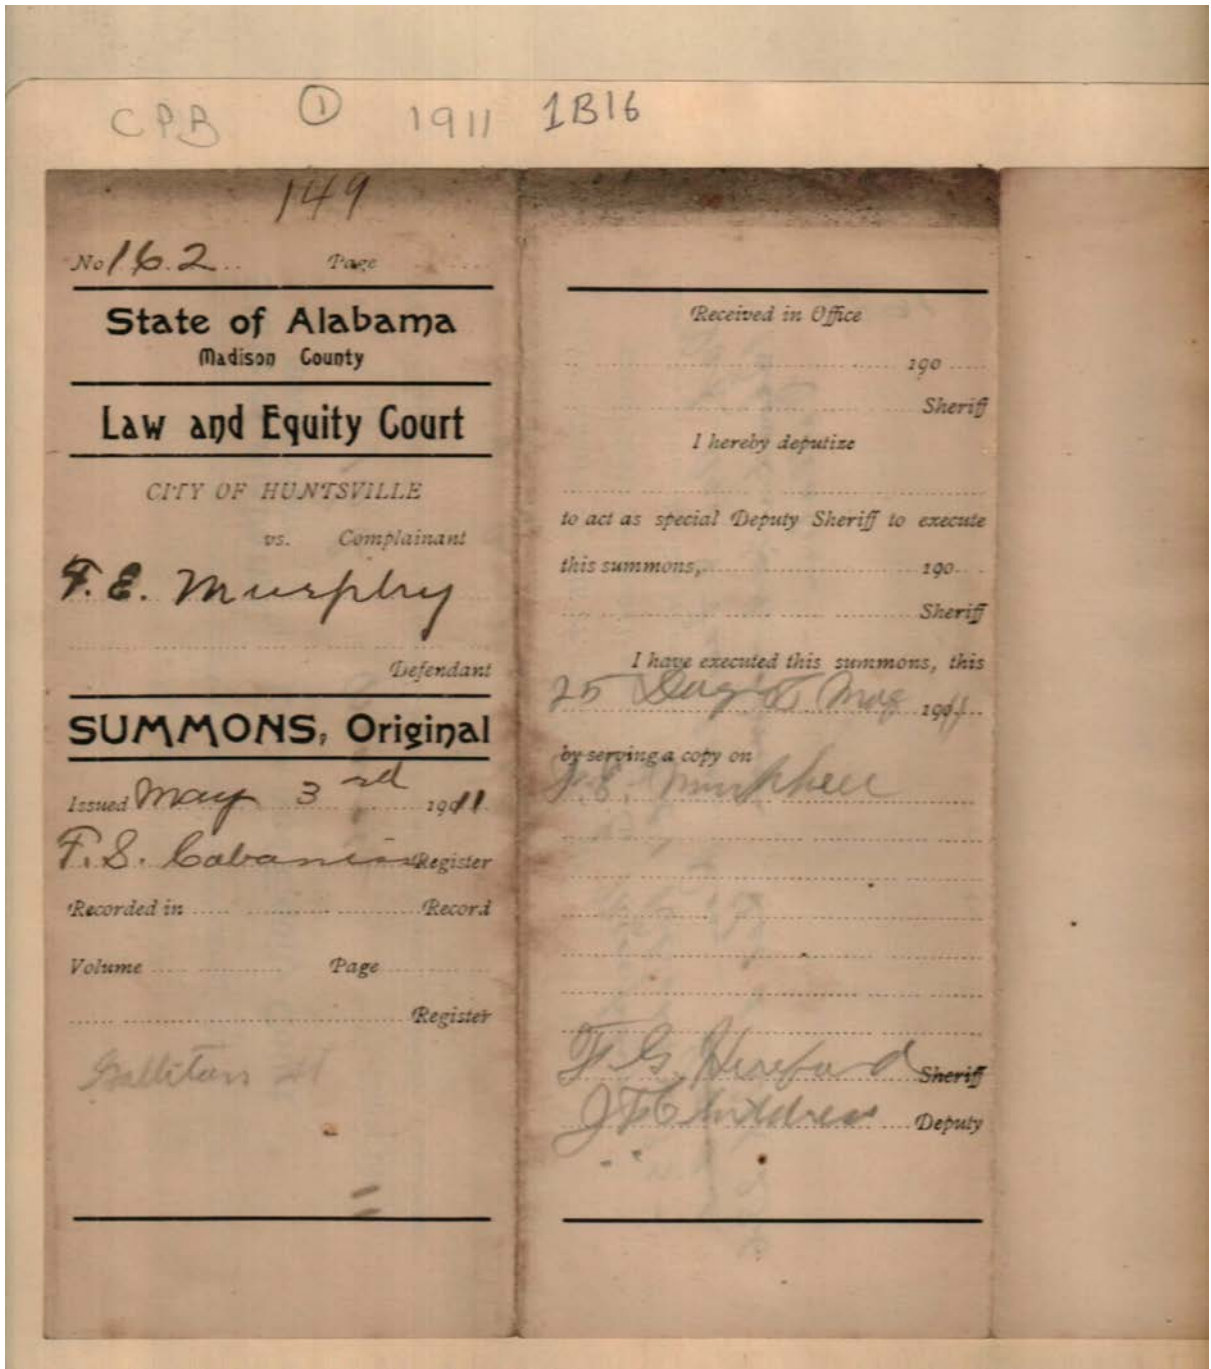 CPB 1 1911 1B16
149
No 162 Page
State of Alabama
Madison County
Law and Equity Court
CITY OF HUNTSVILLE
vs. Complainant
F. E. Murphy
Defendant
SUMMONS, Original
Issued May 3rd 1911
F. S. Cabaniss Register
Recorded in Record
Volume Page
Register
Received in Office
190
Sheriff
I hereby deputize
to act as special Deputy Sheriff to execute
this summons, 190
Sheriff
I have executed this summons, this
25 Day of May 1911
by serving a copy on
F. E.
F. G. Hereford Sheriff
Deputy